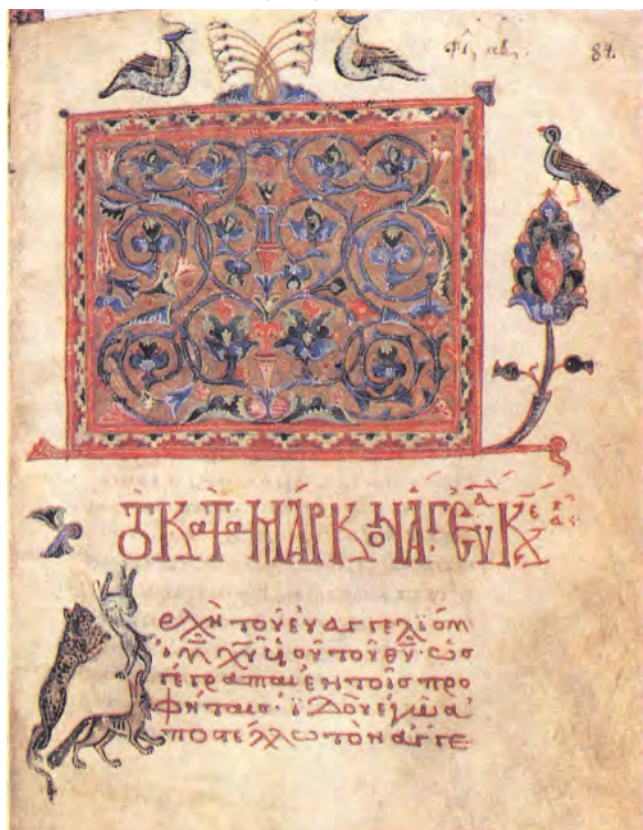 84.
ΤΟ ΚαΤα ΜΆΡΚΟΝ ἉΓ ΕΥ
ρχὴ τοῦ εὐαγγελίου
ἰ̅υ̅ χ̅υ̅ υἱοῦ τοῦ θ̅υ̅· ὡς
γέγραπται ἐν τοῖς προ
φήταις· ἰδοὺ ἐγὼ ἀ
ποστέλλω τὸν ἄγγε